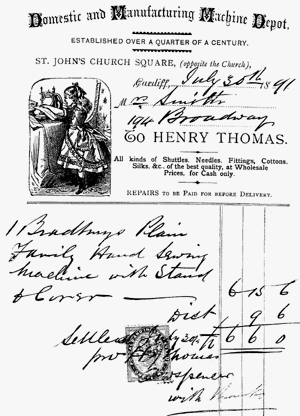 Domestic and Manufacturing Machine Depot,
ESTABLISHED OVER A QUARTER OF A CENTURY.
ST. JOHN'S CHURCH SQUARE, (opposite the Church),
Cardiff, July 30th 1891
Mr Smith
194 Broadway
To HENRY THOMAS.
All kinds of Shuttles, Needles, Fittings, Cottons,
Silks, &c. of the best quality, at Wholesale
Prices, for Cash only.
REPAIRS TO BE PAID FOR BEFORE DELIVERY.
1 Bradburys Plain
Family Hand Sewing
Machine with Stand
& Cover 6 15 6
Dist 9 6
Settled July 6 6 0
pro Thomas
Spencer
with thanks